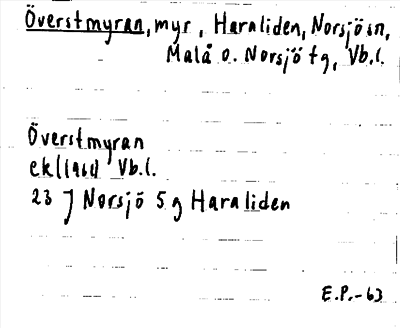 Överstmyran, myr, Haraliden, Norsjö sn,
Malå o. Norsjö tg, Vb.l.
Överstmyran
ekl(1961) Vb.l.
23 J Norsjö 5 g Haraliden
E.P.-63